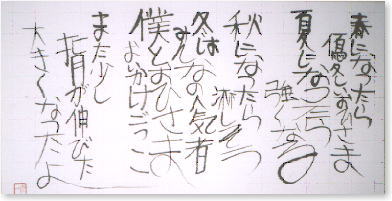 春になったら
優しいおひさま
夏になったら
強くなる
秋になったら
淋しそう
冬は
みんなの人気者
僕とおひさま
おいかけごっこ
また少し
背が伸びた
大きくなったよ